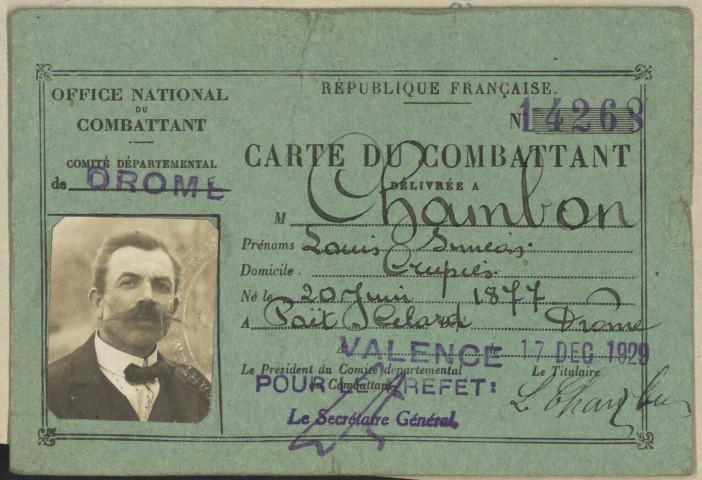 OFFICE NATIONAL
DU
COMBATTANT
COMITÉ DÉPARTEMENTAL
de DROME
RÉPUBLIQUE FRANÇAISE.
N 14268
CARTE DU COMBATTANT
DÉLIVRÉE A
M Chambon
Prénoms Louis
Domicile. Crupies
Né le 20 Juin 1877
A Drôme
A VALENCE 17 DEC 1929
Le Président du Comité départemental
du Combattant
Le Titulaire
POUR LE PREFET:
Le Secrétaire Général
L Chambon